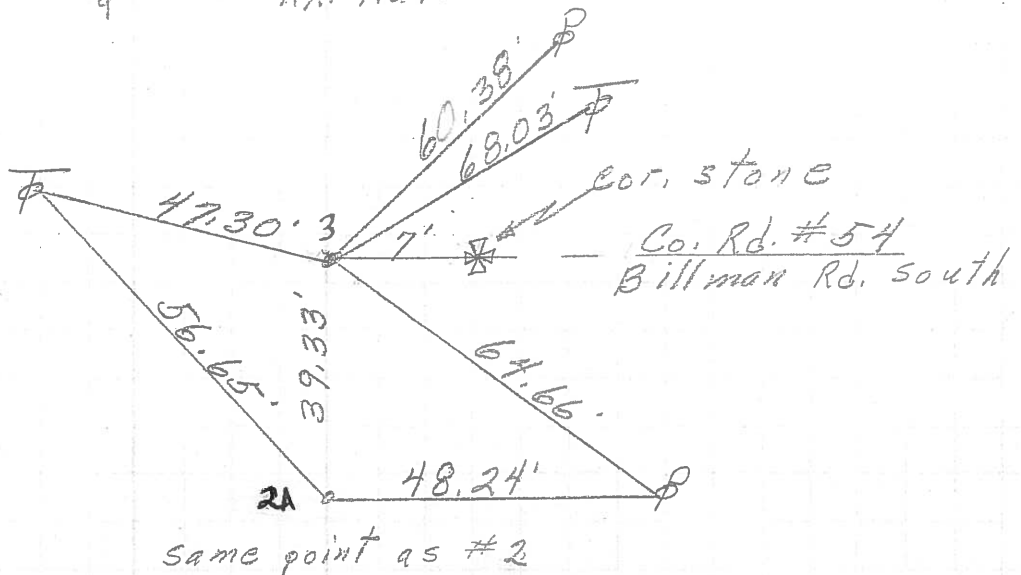 60.38'
68.03'
cor. stone
47.30'
3
7'
Co. Rd. #54
Billman Rd. south
56.65'
39.33'
64.66'
2A
48.24'
same point as #2